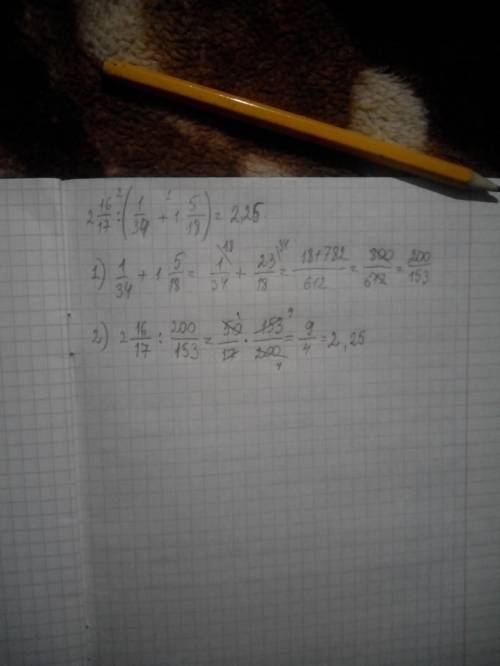 2 16/17 : (1/34 + 1 5/18) = 2,25
1) 1/34 + 1 5/18 = 1/34 + 23/18 = 18+782/612 = 800/612 = 200/153
2) 2 16/17 : 200/153 = 50/17 · 153/200 = 9/4 = 2,25